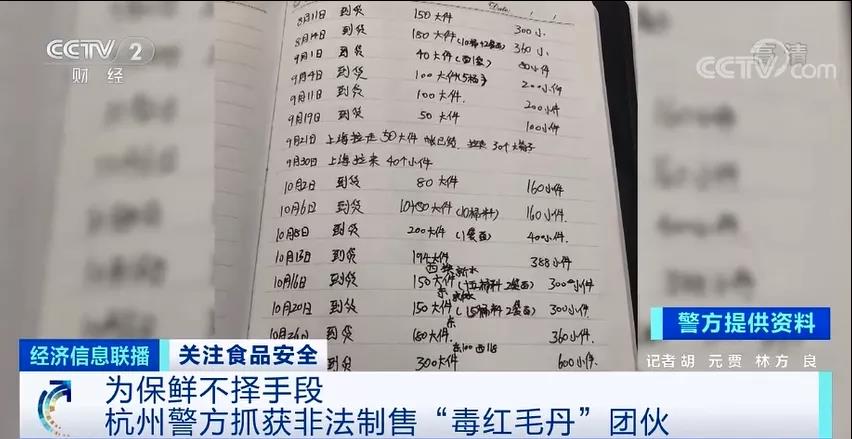 CCTV 2
财经
高清
CCTV.com
Date
8月11日 到货 150大件 300小
8月14日 到货 180大件 360小
9月1日 到货 40大件 80小件
9月4日 到货 100大件 200小件
9月11日 到货 100大件. 200小件
9月19日 到货 50大件 100小件
9月21日 上海拉走50大件
9月30日 上海拉来 40个小件
10月2日 到货 80大件 160小件
10月6日 到货 160小件.
10月8日 到货 200大件 400小件.
10月13日 到货 194大件 388小件
10月16日 到货 150大件 300小件
10月20日 到货 150大件 300小件.
10月26日 到货 180大件. 360小件.
到货 300大件 600小件.
警方提供资料
记者 胡 元 贾 林 方 良
经济信息联播
关注食品安全
为保鲜不择手段
杭州警方抓获非法制售“毒红毛丹”团伙